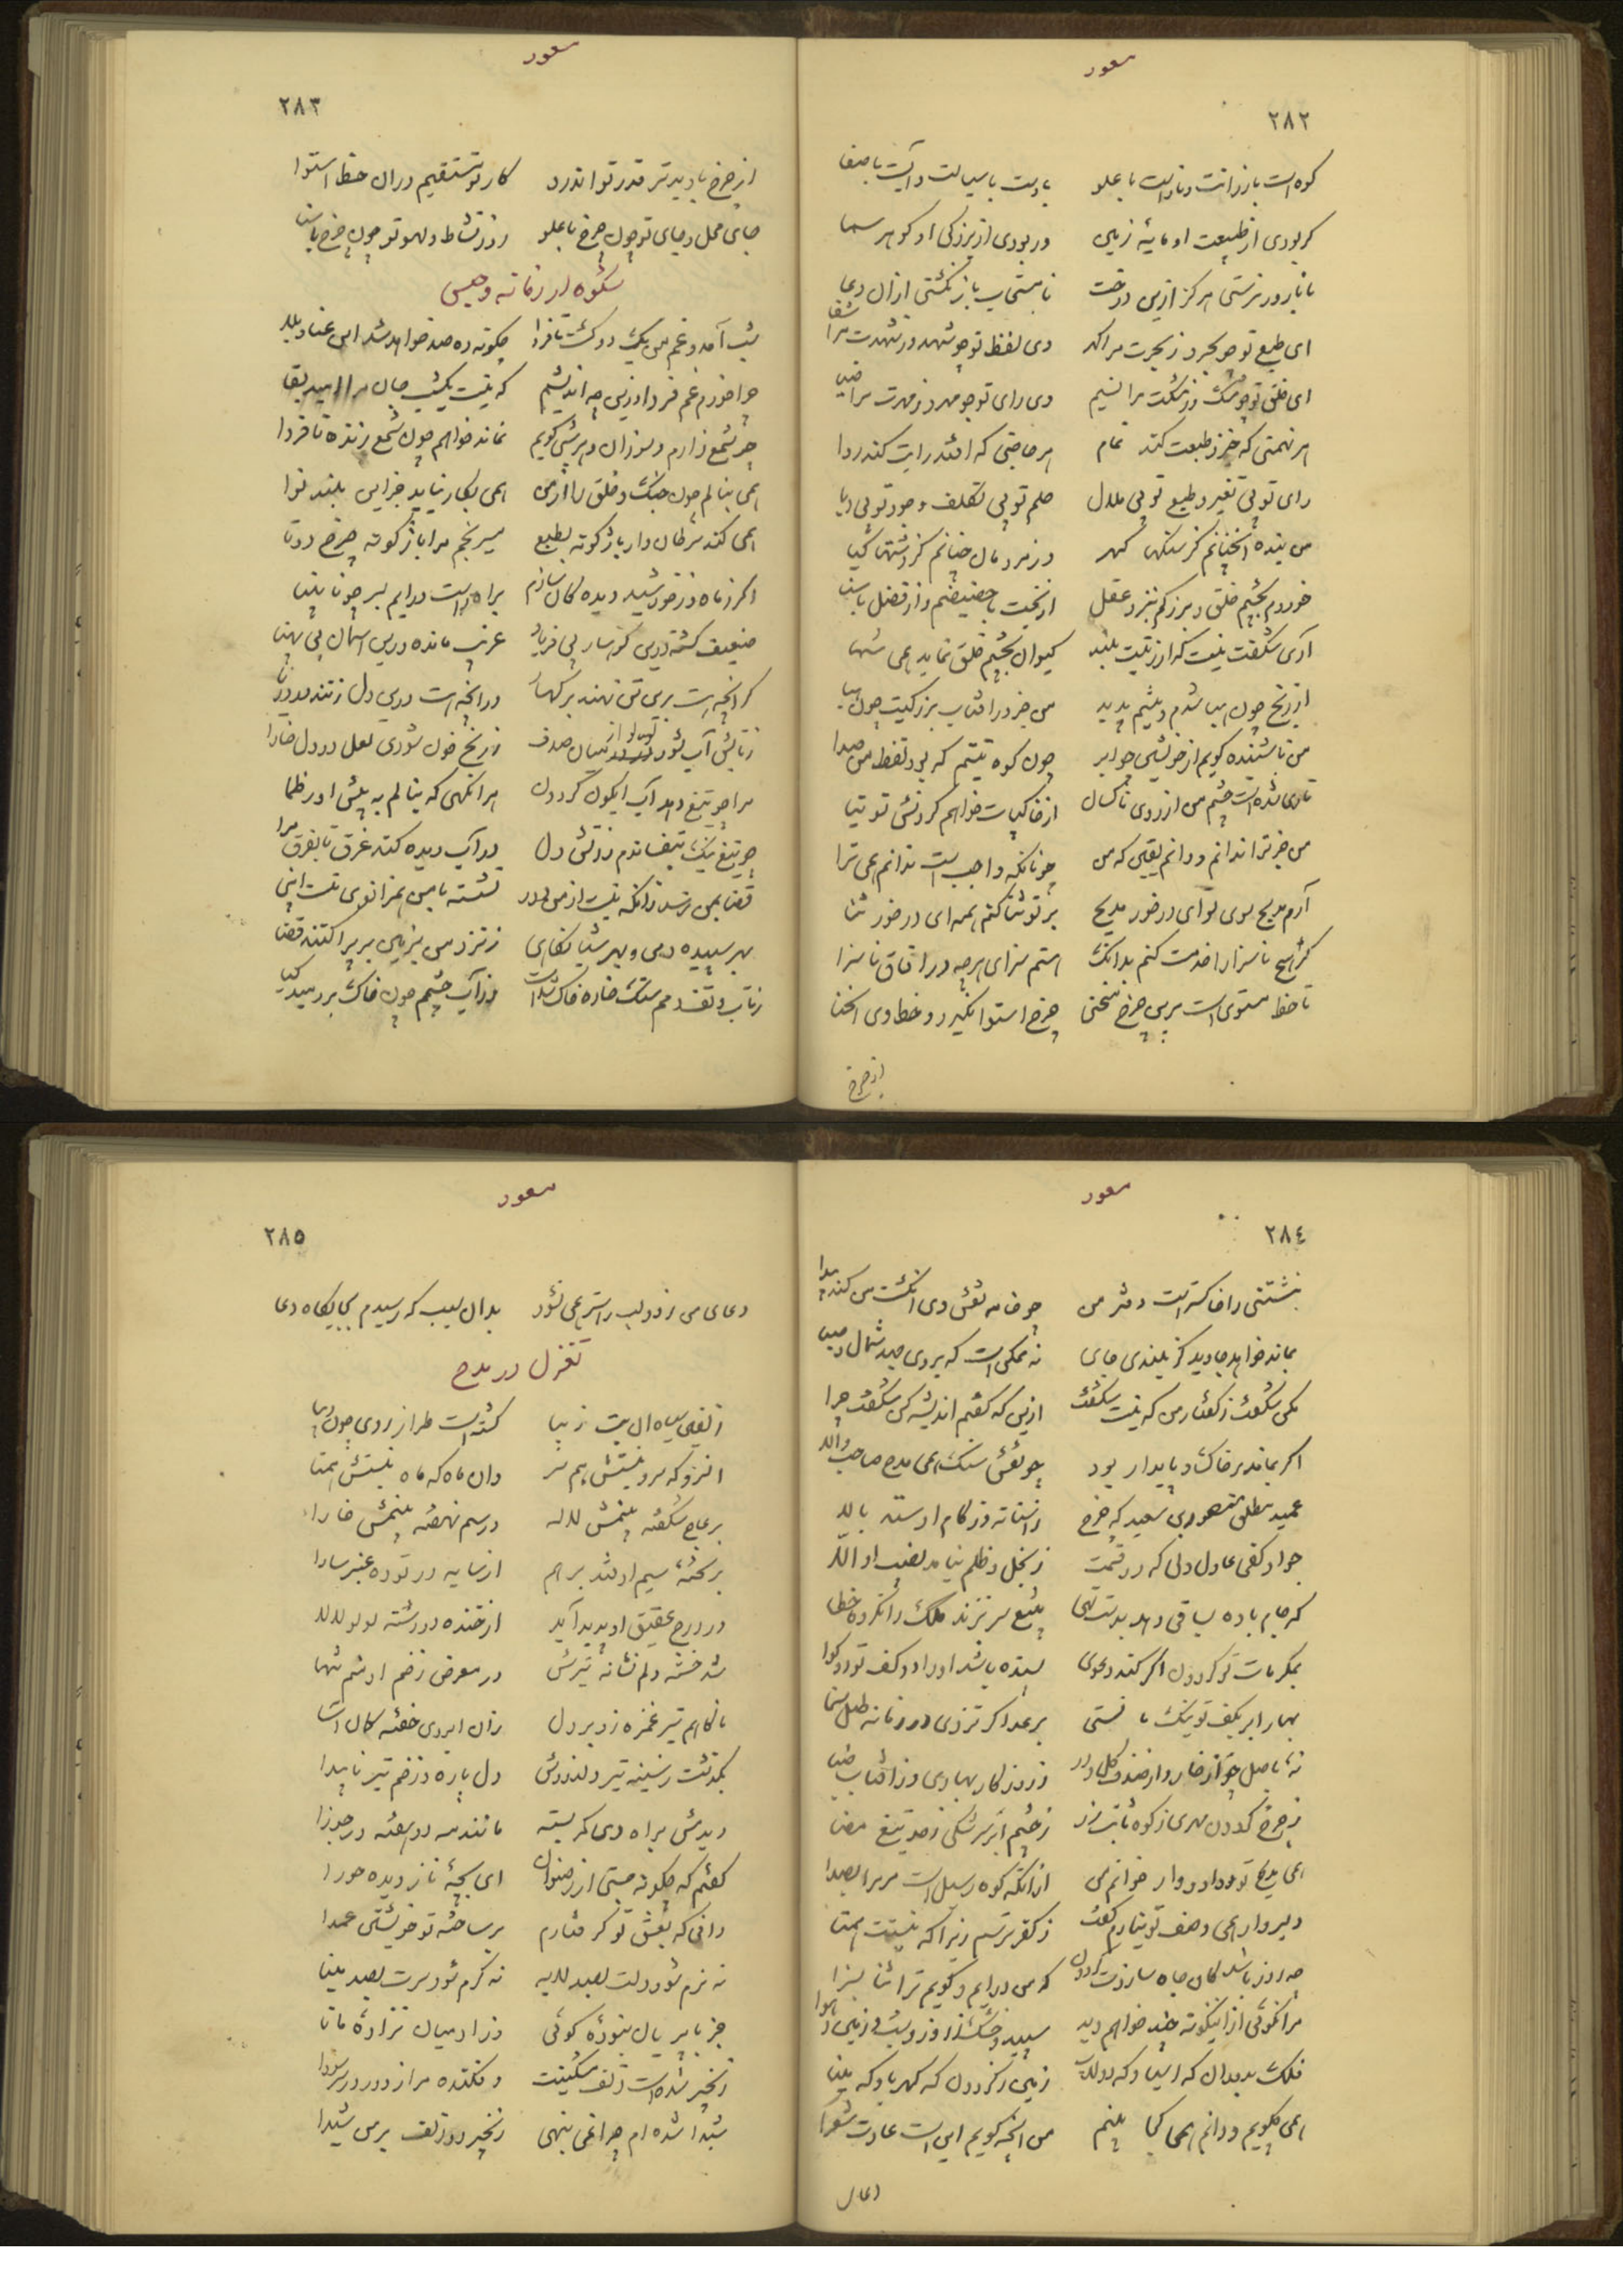 مسعود
٢٨٢
کوه است بارزانت و نار است با علو بادست با سیاست و آبست با صفا
گر بودی از طبیعت او مایهٔ زمین ور بودی از بزرگی او گوهر سما
تا بارور نرستی هرگز ازین درخت نامستجاب باز نگشتی از آن دعا
ای طبع تو چو بحر و ز بحرت مرا گهر وی لفظ تو چو شهد و ز شهدت مرا شفا
ای خلق تو چو مشک و ز مشکت مرا نسیم وی رای تو چو مهر و ز مهرت مرا ضیا
هر نهمتی که خیزد طبعت کند تمام هر حاجتی که افتد رایت کند روا
رای تو بی تغیر و طبع تو بی ملال حلم تو بی تکلف و جود تو بی ریا
من بنده آنچنانم کز سنگها گهر در مردمان چنانم کز دشتها گیا
خوردم بچشم خلق و بزرگم بنزد عقل از بخت با حضیضم و از فضل با سنا
آری شگفت نیست که از رتبت بلند کیوان بچشم خلق نماید همی سها
از رنج چون هبا شدم و نیستم پدید من جز در آفتاب بزرگیت چون هبا
من تا شنیده گویم از خویشتن جواب چون کوه نیستم که بود لفظ من صدا
تاری شده است چشم من از روی ناکسان از خاکپات خواهم کردنش توتیا
من جز ترا ندانم و دانم یقین که من چونانکه واجب است ندانم همی ترا
آرم مدیح سوی تو ای درخور مدیح بر تو ثنا کنم همه ای درخور ثنا
گر هیچ ناسزا را خدمت کنم بدانک هستم سزای هرچه در آفاق ناسزا
تا خط مستوی است برین چرخ منحنی چرخ استوا نگیرد و خط وی انحنا
از چرخ
مسعود
٢٨٣
از چرخ باد برتر قدر تو اندرو کار تو مستقیم در آن خط استوا
جای محل و جای تو چون چرخ با علو روز نشاط و لهو تو چون چرخ با سنا
شکوه از زمانه و حبس
شب آمد و غم من یک دو گشت تا فردا چگونه ده صد خواهد شد این عنا و بلا
چرا خورم غم فردا وزین چه اندیشم که نیست یک شب جان مرا امید بقا
چو شمع زارم و سوزان و هر شبی گویم نماند خواهم چون شمع زنده تا فردا
همی بنالم چون چنگ و خلق را از من همی بکار نیاید جز این بلند نوا
همی کند سرطان وار باژگونه بطبع مسیر نجم مرا باژگونه چرخ دوتا
اگر ز ماه و ز خورشید دیدگان سازم براه راست درآیم بسر چو نابینا
ضعیف گشته درین کوهسار بی فریاد غریب مانده درین آسمان بی پهنا
گر آنچه هست برین تن نهند بر کهسار ور آنچه هست درین دل زنند بر دریا
ز تابش آب شود در میان صدف ز رنج خون شودی لعل در دل خارا
مرا چو تیغ دهد آب آبگون گردون هر آنگهی که بنالم به پیش او ز ظما
چو تیغ نیک بتفساندم ز آتش دل در آب دیده کند غرق تا بفرق مرا
قضا بمن نرسد زانکه نیست از من دور نشسته با من هم زانوی منست اینجا
بهر سپیده دمی و بهر شبانگاهی ز نزد من بزمین بر پراکنند قضا
ز تاب و تف دمم سنگ خاره خاک شده است در آب چشمم چون خاک بردمید گیا
مسعود
٢٨٤
نبشتنی را خاکستر است دفتر من چو خامه نقش وی انگشت من کند پیدا
بماند خواهد جاوید کز بلندی جای نه ممکن است که بر وی جهد شمال و صبا
همی شگفت ز گفتار من که نیست شگفت ازین که گفتم اندیشه کن شگفت چرا
اگر بماند بر خاک و پایدار بود چو نقش سنگ همی مدح صاحب والا
عمید مطلق منصور بن سعید که چرخ ز آستانهٔ درگاه او ستد بالا
جواد کفی عادل دلی که در قسمت ز بخل و ظلم نیامد نصیب او الا
که جام باده بساقی دهد بدست تهی بتیغ سر بزند کلک را نکرده خطا
بمکرمات تو گر دون اگر کند دعوی بسنده باشد او را دو کف تو دو گوا
بهار ابر بکف تو نیک مانستی برعد اگر نزدی در زمانه طبل سخا
نه باصل جواز خار و از صدف گل و در و ز روزگار بهاری و ز آفتاب ضیا
ز چرخ گردون مهری ز کوه ثابت زر ز چشم ابر سرشکی ز حد تیغ مضا
همی مدیح تو داود وار خوانم من از آنکه کوه رسیل است مر مرا بصدا
دلیروار همی وصف تو نیارم گفت ز کفر ترسم زیرا که نیستت همتا
چه روز باشد کان جاه سازدت گردون که من درآیم و گویم ترا ثنا بسزا
مرا نگوئی ازینگونه چند خواهم دید سپید و خشک ز اروز و شب زمین و هوا
فلک بدوران گه آسیا و گه دولاب زمین ز گردون گه کهربا و گه مینا
همی بگویم و دانم همی کجا بینم من آنچه گویم این است عادت شعرا
دعای
مسعود
٢٨٥
دعای من ز دو لب راستر همی نشود بدان سبب که رسیدم بجایگاه دعا
تغزل در مدح
زلفین سیاه آن بت زیبا گشته است طراز روی چون دیبا
آن سرو که سرو نیستش همسر وان ماه که ماه نیستش همتا
بر عاج شکفته بینمش لاله در سیم نهفته بینمش خارا
بر تختهٔ سیم او فتد بر هم از سایه در توده عنبر سارا
در درج عقیق او پدید آید از خنده دو رشته لولو لالا
شد خسته دلم نشانهٔ تیرش در معرض زخم او منم تنها
ناگاهم تیر غمزه زد بر دل زان ابروی خفته کمان آسا
بگذشت ز سینه تیر دلدوزش دل پاره و زخم تیر ناپیدا
دیدمش براه دی کمر بسته مانند مه دو هفته در جوزا
گفتم که چگونه جستی از رضوان ای بچهٔ ناز دیده حورا
دانی که بعشق تو گرفتارم بر ساختهٔ تو خویشتن عمدا
نه نرم شود دلت بصد لابه نه گرم شود سرت بصد مینا
جز با پریان نبودهٔ گوئی وز آدمیان نزادهٔ مانا
زنجیر شده است زلف مشکینت و افکنده مرا ز دور در سودا
شیدا شده ام چرا همی ننهی زنجیر دو زلف بر من شیدا